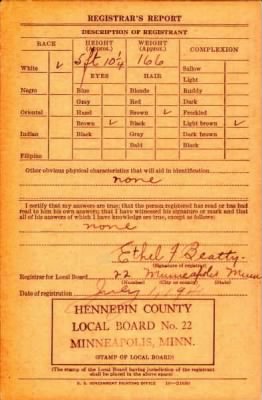 REGISTRAR'S REPORT
DESCRIPTION OF REGISTRANT
RACE HEIGHT (Approx.) WEIGHT (Approx.) COMPLEXION
White ✓ 5 ft 10¼ 166 Sallow
EYES HAIR Light
Negro Blue Blonde Ruddy
Gray Red Dark
Oriental Hazel Brown ✓ Freckled
Brown ✓ Black Light brown ✓
Indian Black Gray Dark brown
Bald Black
Filipino
Other obvious physical characteristics that will aid in identification
none
I certify that my answers are true; that the person registered has read or has had
read to him his own answers; that I have witnessed his signature or mark and that
all of his answers of which I have knowledge are true, except as follows:
none
Ethel F Beatty
(Signature of registrar)
Registrar for Local Board 22 Minneapolis Minn
(Number) (City or county) (State)
Date of registration July
HENNEPIN COUNTY
LOCAL BOARD No. 22
MINNEAPOLIS, MINN.
(STAMP OF LOCAL BOARD)
(The stamp of the Local Board having jurisdiction of the registrant
shall be placed in the above space)
U. S. GOVERNMENT PRINTING OFFICE 16—21630